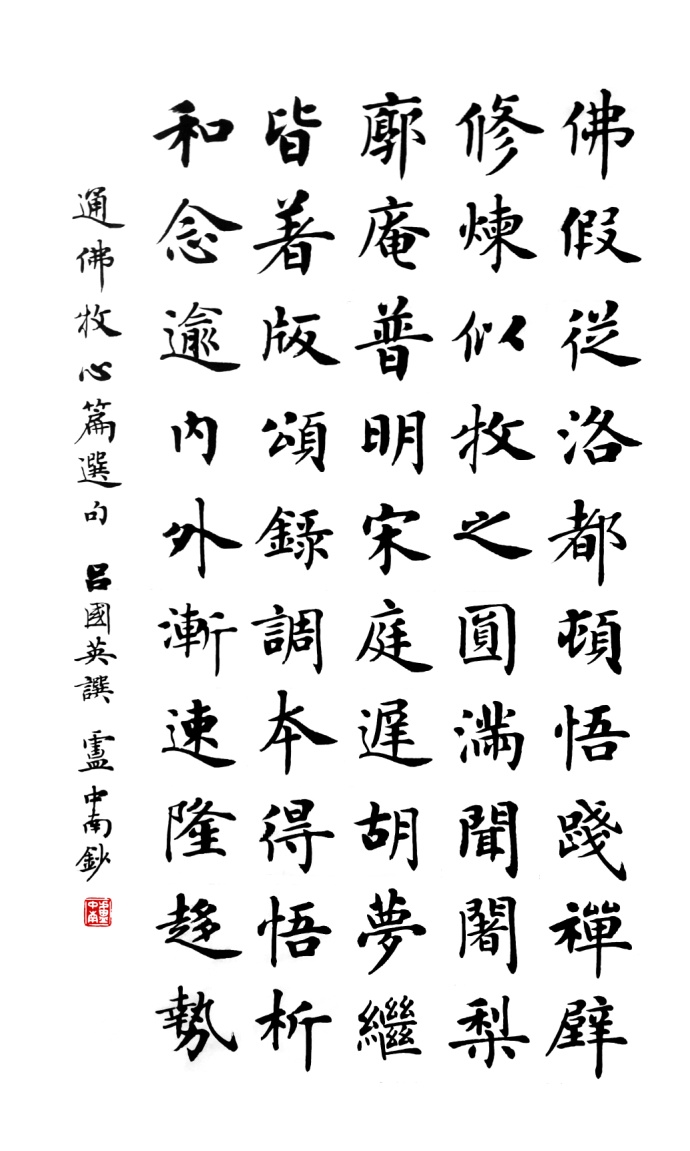 佛假從洛都頓悟踐禪壁
修煉似牧之圓滿聞闍梨
廓庵普明宋庭遲胡夢繼
皆著版頌錄調本得悟析
和念逾內外漸速隆趨勢
通佛牧心篇選句 呂國英譔 盧中南鈔